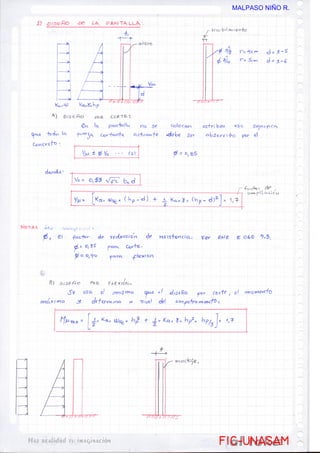 MALPASO NIÑO R.
2) DISEÑO DE LA PANTALLA:
t₁
recubrimiento
acero
φ 3/4" r = 4cm d = t-5
φ 5/8" r = 5cm d = t-6
Vdu
d
Ka.w Ka.γ.hp
A) DISEÑO POR CORTE:
En la pantalla no se colocan estribos por
que toda la fuerza cortante actuante debe ser absorvido por el
concreto:
Vdu ≤ φ Vc ... (a) φ = 0,85
donde:
Vc = 0,53 √f'c b.d
factor de
amplificación
Vdu = [Ka. Ws/c. (hp - d) + 1/2 Ka. γ. (hp - d)²] . 1,7
NOTAS:
φ, El factor de reducción de resistencia. Ver RNE E 060 9.3.
φ = 0,85 para corte.
φ = 0,90 para flexión
B) DISEÑO POR FLEXIÓN:
Se usa el mismo que el diseño por corte, el momento
máximo se determina a nivel del empotramiento:
Mu max = [1/2 . Ka. Ws/c. hp² + 1/2 . Ka. γ. hp². hp/3] . 1,7
Haz realidad tu imaginación
FIC-UNASAM